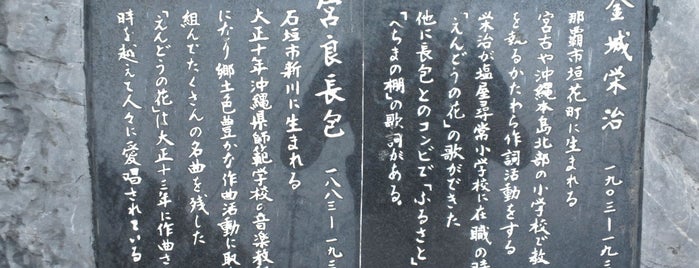 金城栄治 一九〇三ー一九三
那覇市垣花町に生まれる
宮古や沖縄本島北部の小学校で教
を執るかたわら作詞活動をする
栄治が塩屋尋常小学校に在職の時
「えんどうの花」の歌ができた
他に長包とのコンビで「ふるさと」
「へちまの棚」の歌詞がある。
宮良長包 一八八三ー一九三
石垣市新川に生まれる
大正十年沖縄県師範学校の音楽教
になり郷土色豊かな作曲活動に取
組んでたくさんの名曲を残した
「えんどうの花」は大正十三年に作曲さ
時を越えて人々に愛唱されている